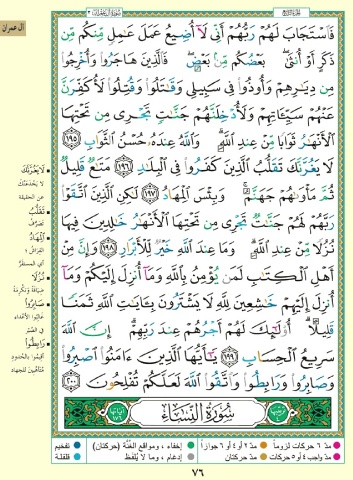 آل عمران
سورة آل عمران ٣
الجزء الرابع
فَاسْتَجَابَ لَهُمْ رَبُّهُمْ أَنِّي لَا أُضِيعُ عَمَلَ عَامِلٍ مِنْكُمْ مِنْ
ذَكَرٍ أَوْ أُنْثَى بَعْضُكُمْ مِنْ بَعْضٍ فَالَّذِينَ هَاجَرُوا وَأُخْرِجُوا
مِنْ دِيَارِهِمْ وَأُوذُوا فِي سَبِيلِي وَقَاتَلُوا وَقُتِلُوا لَأُكَفِّرَنَّ
عَنْهُمْ سَيِّئَاتِهِمْ وَلَأُدْخِلَنَّهُمْ جَنَّاتٍ تَجْرِي مِنْ تَحْتِهَا
الْأَنْهَارُ ثَوَابًا مِنْ عِنْدِ اللَّهِ وَاللَّهُ عِنْدَهُ حُسْنُ الثَّوَابِ ١٩٥
لَا يَغُرَّنَّكَ تَقَلُّبُ الَّذِينَ كَفَرُوا فِي الْبِلَادِ ١٩٦ مَتَاعٌ قَلِيلٌ
ثُمَّ مَأْوَاهُمْ جَهَنَّمُ وَبِئْسَ الْمِهَادُ ١٩٧ لَكِنِ الَّذِينَ اتَّقَوْا
رَبَّهُمْ لَهُمْ جَنَّاتٌ تَجْرِي مِنْ تَحْتِهَا الْأَنْهَارُ خَالِدِينَ فِيهَا
نُزُلًا مِنْ عِنْدِ اللَّهِ وَمَا عِنْدَ اللَّهِ خَيْرٌ لِلْأَبْرَارِ ١٩٨ وَإِنَّ مِنْ
أَهْلِ الْكِتَابِ لَمَنْ يُؤْمِنُ بِاللَّهِ وَمَا أُنْزِلَ إِلَيْكُمْ وَمَا
أُنْزِلَ إِلَيْهِمْ خَاشِعِينَ لِلَّهِ لَا يَشْتَرُونَ بِآيَاتِ اللَّهِ ثَمَنًا
قَلِيلًا أُولَئِكَ لَهُمْ أَجْرُهُمْ عِنْدَ رَبِّهِمْ إِنَّ اللَّهَ
سَرِيعُ الْحِسَابِ ١٩٩ يَا أَيُّهَا الَّذِينَ آمَنُوا اصْبِرُوا
وَصَابِرُوا وَرَابِطُوا وَاتَّقُوا اللَّهَ لَعَلَّكُمْ تُفْلِحُونَ ٢٠٠
سُورَةُ النِّسَاءِ
آياتها ١٧٦
لَا يَغُرَّنَّكَ
لا يخدعنّك
عن الحقيقة
تَقَلُّبُ
تصرّف
الْمِهَادُ
الفراش؛
أي المستقرّ
نُزُلًا
ضيافة وتكرمة
صَابِرُوا
غالبوا الأعداء
في الصبر
رَابِطُوا
أقيموا بالحدود
متأهبين للجهاد
مدّ ٦ حركات لزوماً
مدّ ٢ أو ٤ أو ٦ جوازاً
إخفاء، ومواقع الغُنَّة (حركتان)
تفخيم
مدّ واجب ٤ أو ٥ حركات
مدّ حركتان
إدغام، وما لا يُلفظ
قلقلة
٧٦